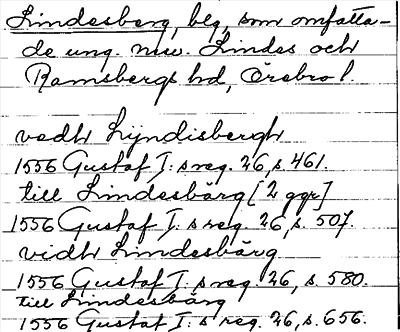 Lindesberg, blg, som omfatta-
de ung. nuv. Lindes och
Ramsbergs hd, Örebro l.
vedh Lijndisbergh
1556 Gustaf I:s reg. 26, s. 461.
till Lindesbärg [2 ggr]
1556 Gustaf I:s reg. 26, s. 507.
vidh Lindesbärg
1556 Gustaf I:s reg. 26, s. 580.
till Lindesbärg
1556 Gustaf I:s reg. 26, s. 656.